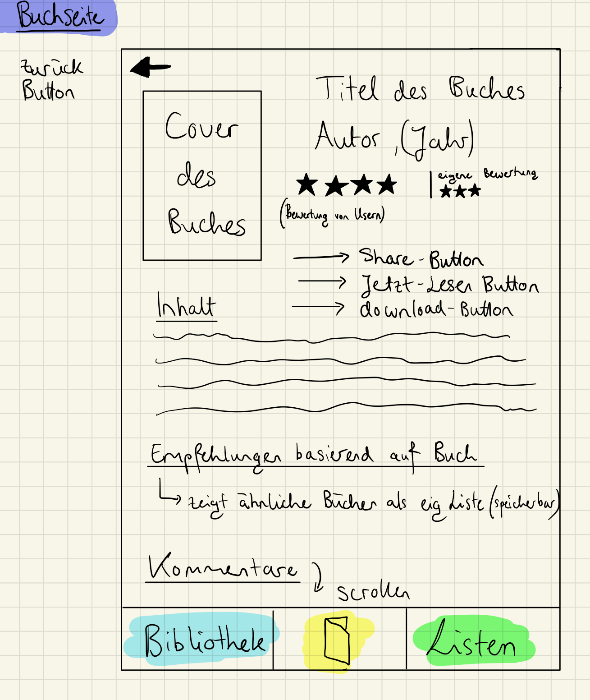 Buchseite
zurück
Button
Titel des Buches
Autor, (Jahr)
Cover
des
Buches
eigene Bewertung
(Bewertung von Usern)
Share-Button
Jetzt-Lesen Button
download-Button
Inhalt
Empfehlungen basierend auf Buch
zeigt ähnliche Bücher als eig Liste (speicherbar)
Kommentare
scrollen
Bibliothek
Listen